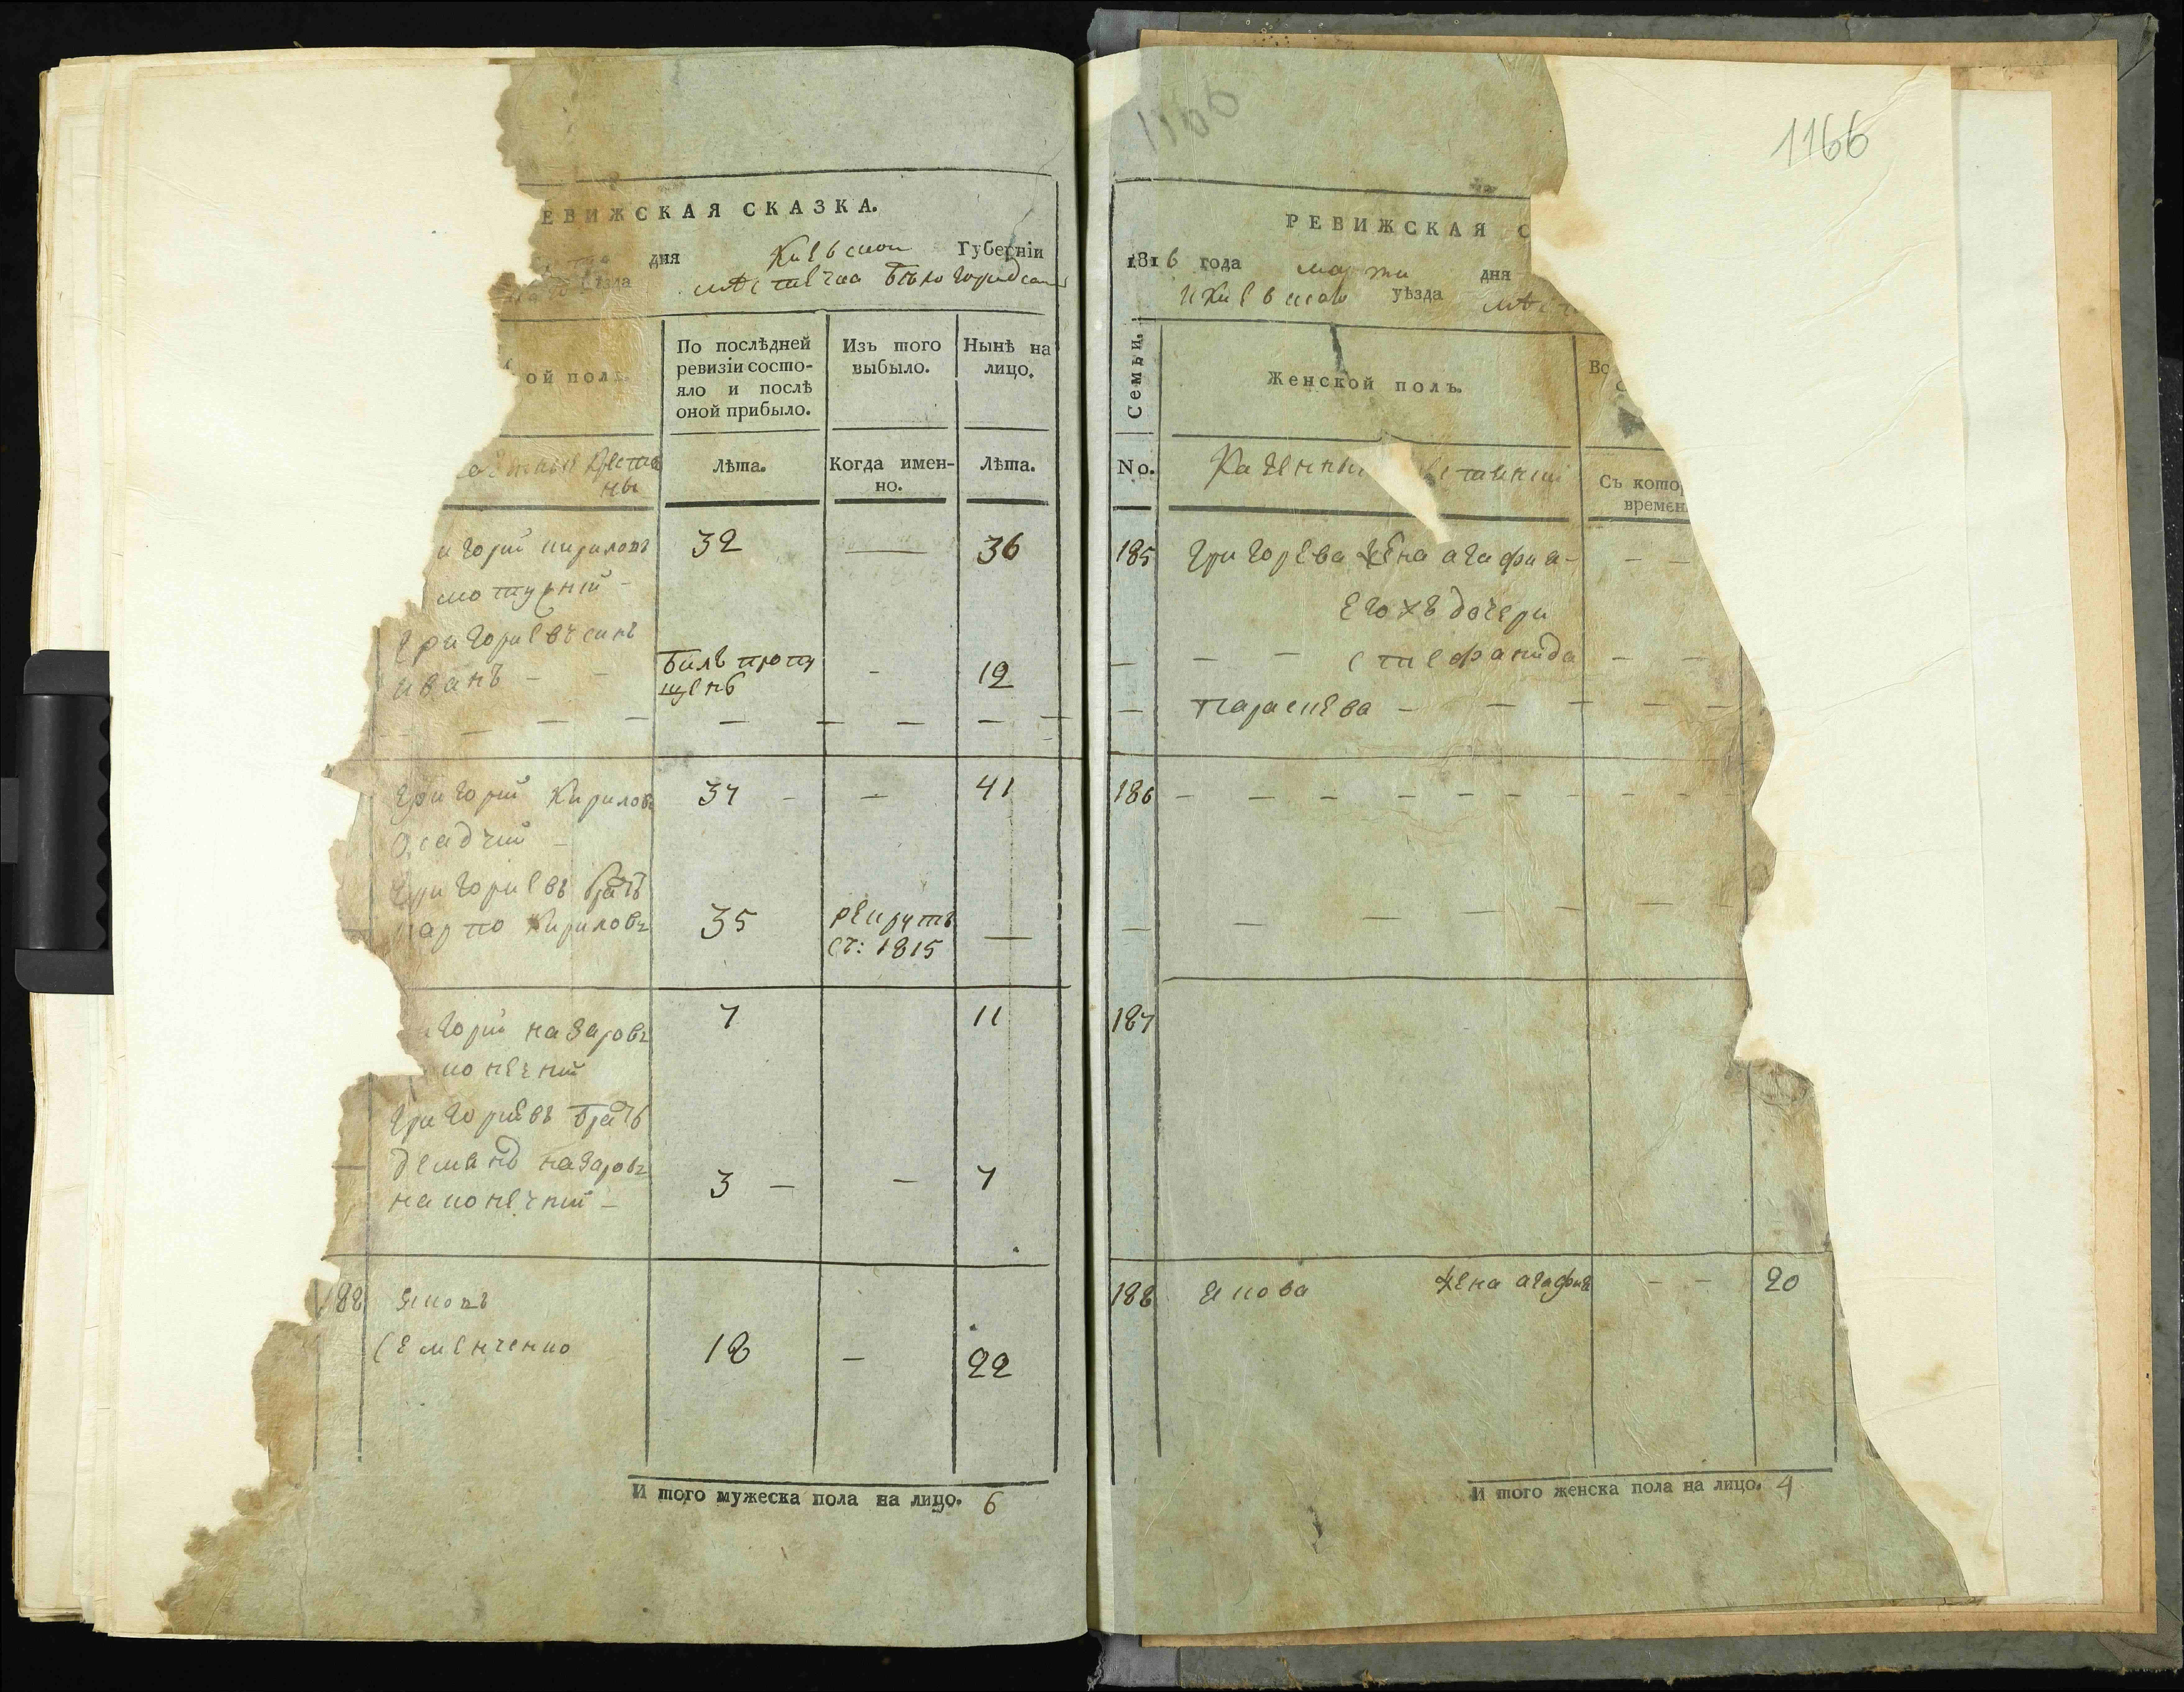 ЕВИЖСКАЯ СКАЗКА.
дня Киевской Губерніи
мѣстечка Бѣлогородки
ой полъ.
По послѣдней
ревизіи состо-
яло и послѣ
оной прибыло.
Изъ того
выбыло.
Нынѣ на
лицо.
ны
Лѣта.
Когда имен-
но.
Лѣта.
игорій кириловъ 32 — 36
Григориевъ синъ
иванъ - - билъ пропу
щенъ - 12
Григорий Кириловъ 37 - - 41
Осадчий -
Григориевъ братъ
Карпо Кириловъ 35 рекрутъ —
съ: 1815
игорий назаровъ 7 11
конечний
Григорийвъ братъ
демянъ назаровъ
наконечний - 3 - - 7
188 Яковъ
Семенченко 18 - 22
И того мужеска пола на лицо. 6
1166
1166
РЕВИЖСКАЯ С
1816 года марта дня
Киевского уѣзда мѣст
Семьи.
Женской полъ.
Вс
No.
Казенны
Съ котор
времен
185 Григорева жена агафиа - - -
Егожъ дочери
- - - стефанида - -
- Параскева - - - - -
186 - - - - - - - - - -
- - - - - -
187
188 Якова жена агафия - - 20
И того женска пола на лицо. 4